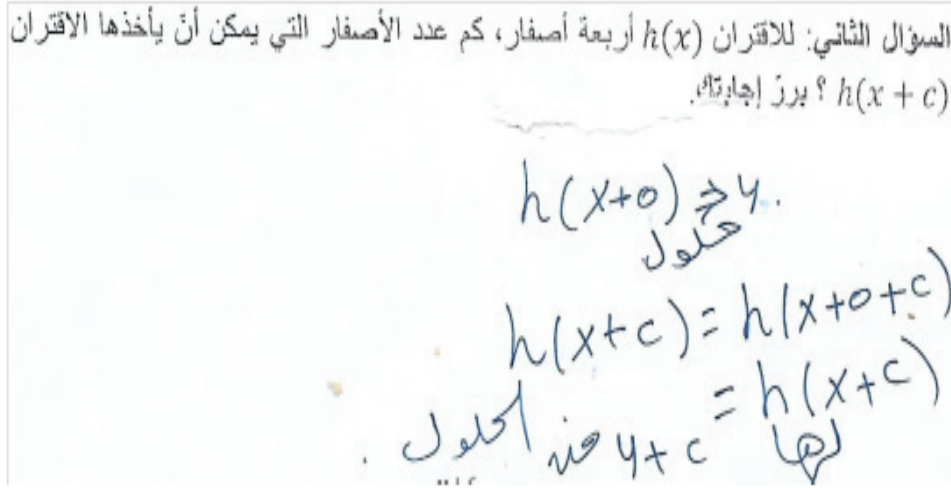 السؤال الثاني: للاقتران h(x) أربعة أصفار، كم عدد الأصفار التي يمكن أنّ يأخذها الاقتران
h(x + c) ؟ بررّ إجابتك.
h(x+0) ⇒ 4.
حلول
h(x+c) = h(x+0+c)
= h(x+c)
لها 4+c من الحلول.